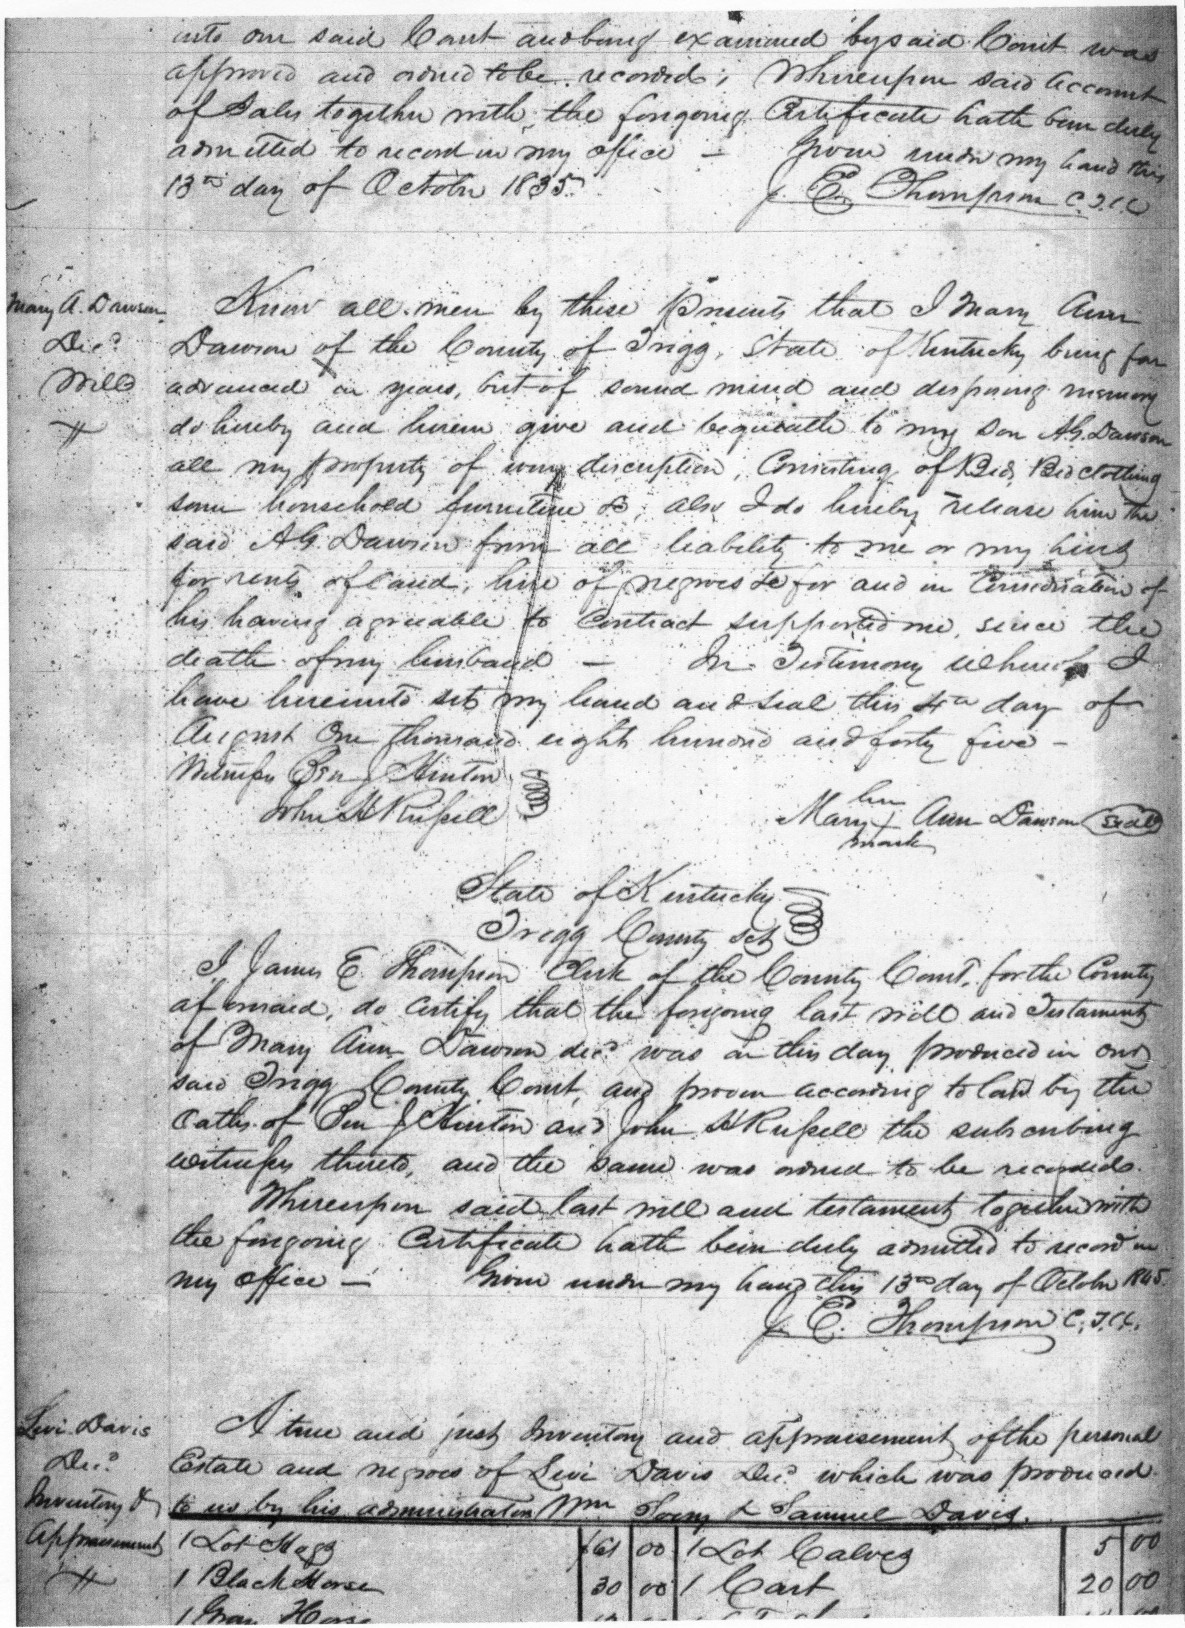 into our said Court and being examined by said Court was
approved and ordered to be recorded; Whereupon said account
of Sales together with the foregoing Certificate hath been duly
admitted to record in my office — Given under my hand this
13th day of October 1835.
J. E. Thompson C.T.C.C
Mary A. Dawson
Decd
Will
Know all men by these Presents that I Mary Ann
Dawson of the County of Trigg, State of Kentucky being far
advanced in years, but of sound mind and disposing memory
do hereby and herein give and bequeath to my son A.G. Dawson
all my property of every discription, Consisting of Bed, Bed clothing
some household furniture &c, also I do hereby release him the
said A.G. Dawson from all liability to me or my heirs
for rents of land, hire of negroes &c for and in Consideration of
his having agreeable to Contract supported me, since the
death of my husband — In Testimony Whereof I
have hereunto set my hand and seal this 4th day of
August One thousand eight hundred and forty five —
Witness Ben J Hinton
John H Russell
her
Mary X Ann Dawson Seal
mark
State of Kentucky
Trigg County Sct
I James E. Thompson Clerk of the County Court, for the County
aforesaid, do certify that the foregoing last will and Testament
of Mary Ann Dawson decd was on this day produced in our
said Trigg County Court, and proven according to law by the
oaths of Ben J Hinton and John H Russell the subscribing
witnesses thereto, and the same was ordered to be recorded.
Whereupon said last will and testament together with
the foregoing Certificate hath been duly admitted to record in
my office — Given under my hand this 13th day of October 1845.
J. E. Thompson C.T.C.C.
Levi Davis
Decd
Inventory &
Appraisement
A true and just Inventory and appraisement of the personal
Estate and negroes of Levi Davis Decd which was produced
to us by his administrators Wm & Samuel Davis.
1 Lot Hogs $61 00 1 Lot Calves 5 00
1 Black Horse 30 00 1 Cart 20 00
1 Gray Horse